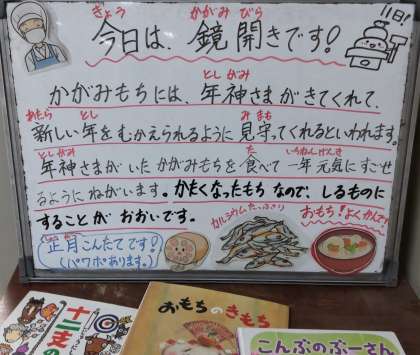 11日!
きょう　かがみ　びら
今日は、鏡開きです!
とし がみ
かがみもちには、年神さまがきてくれて、
あたら　とし　みまも
新しい年をむかえられるように見守ってくれるといわれます。
とし がみ　た　いちねんげんき
年神さまがいたかがみもちを食べて一年元気にすごせ
るようにねがいます。かたくなったもちなので、しるものに
することがおおいです。
カルシウムたっぷり
おもち!よくかんで!
正月こんだてです!
(パワポあります。)
十二支の
おもちのきもち
こんぶのぶーさん